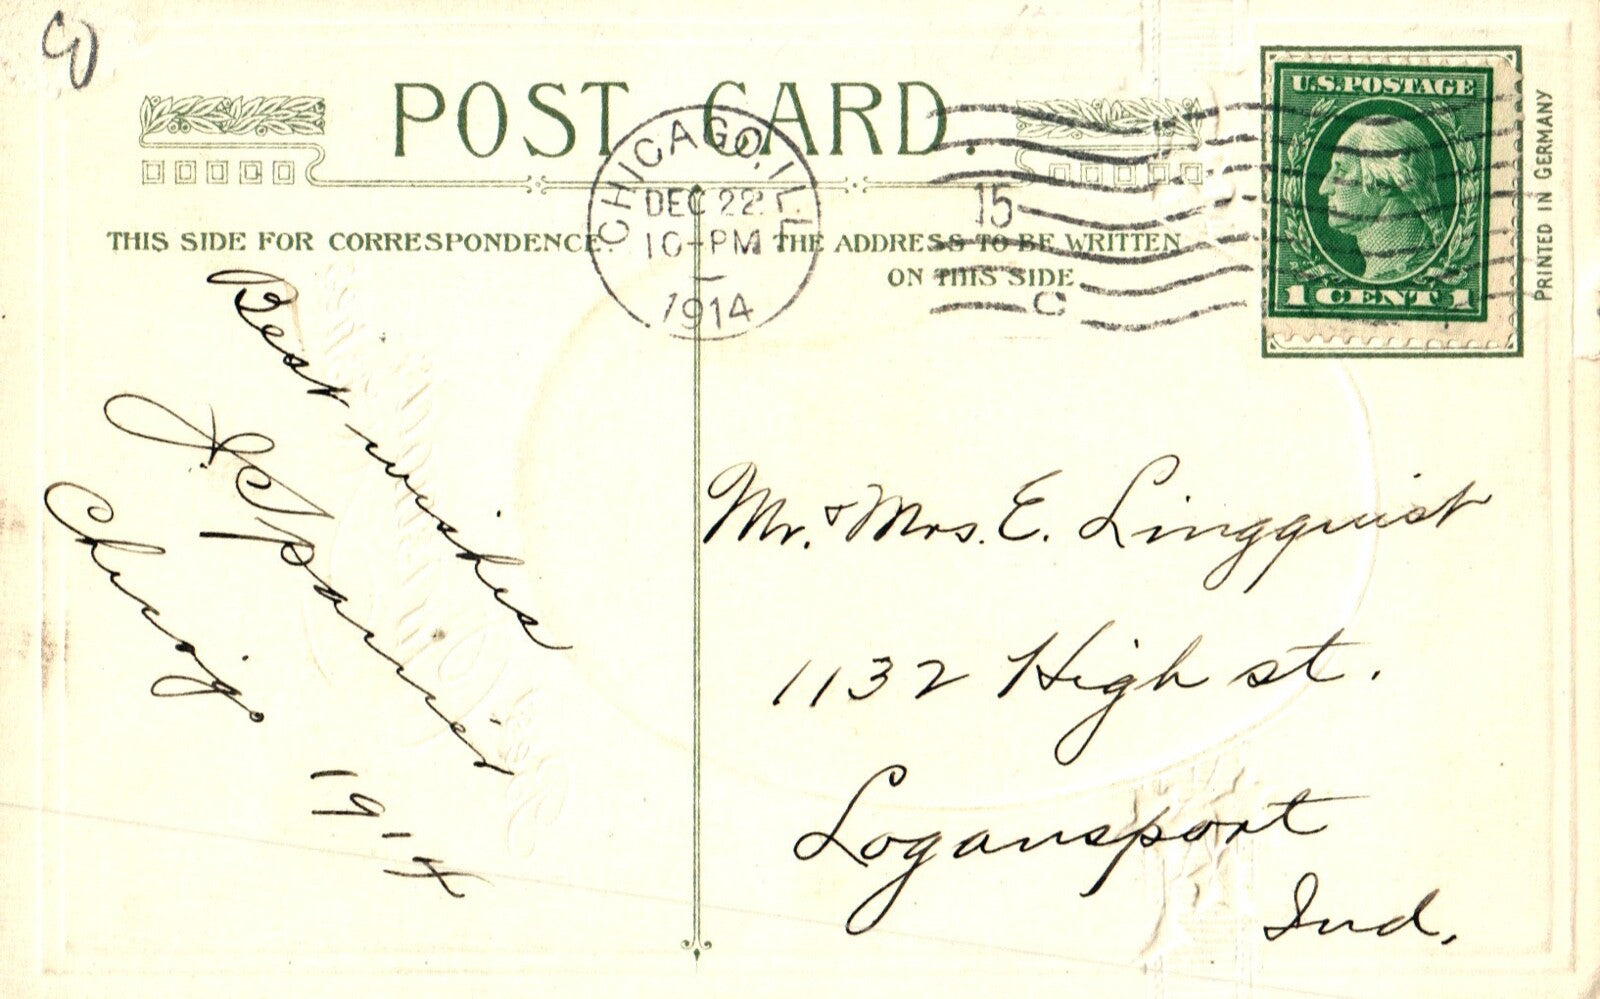 POST CARD.
CHICAGO, ILL.
DEC 22
10-PM
1914
15
C
U.S. POSTAGE
1 CENT 1
PRINTED IN GERMANY
THIS SIDE FOR CORRESPONDENCE.
THE ADDRESS TO BE WRITTEN
ON THIS SIDE
Best wishes
Chicago
1914
Mr. & Mrs. E. Lingquist
1132 High st.
Logansport
Ind.